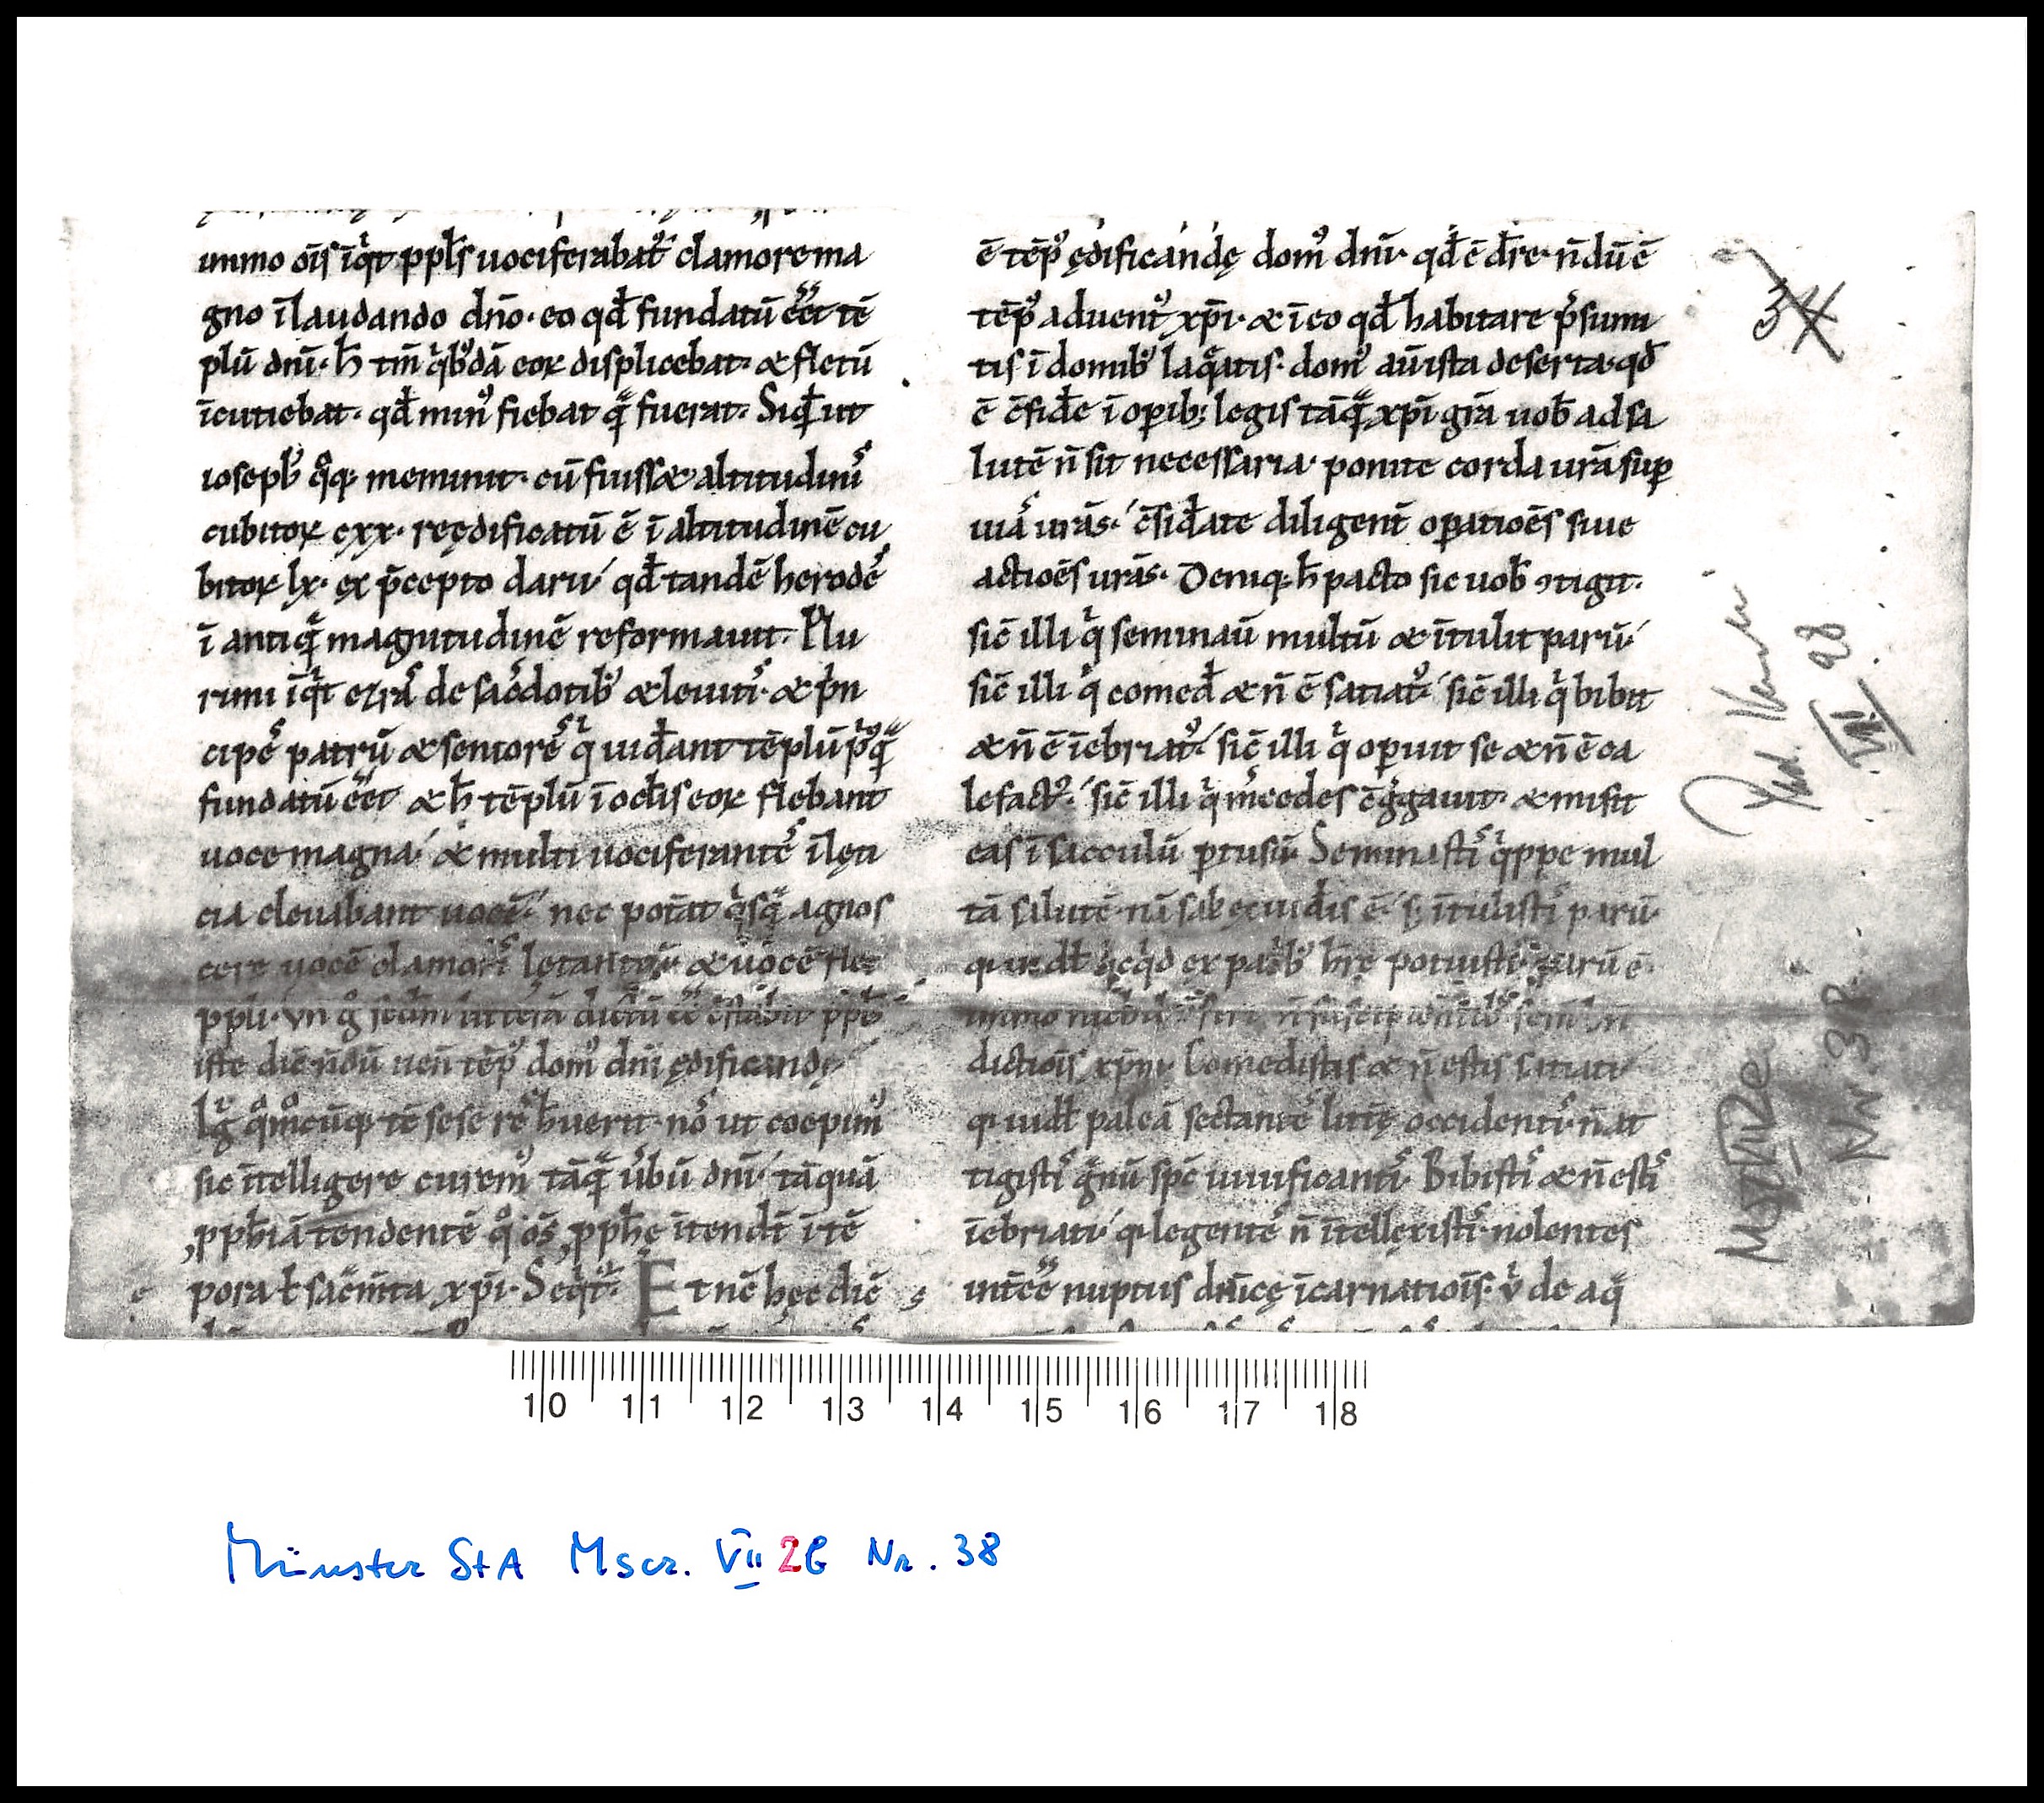 immo oīs īqͥt ppl̄s uociferabat᷒ clamore ma
gno ī laudando dn̄o· eo qd̄ fundatū eēt tē
plū dn̄i· h̄ tm̄ qͥb᷒dā eoꝝ displicebat· & fletū
īcutiebat· qd̄ min᷒ fiebat qᷓ fuerat· Siqͥdē ut
ioseph᷒ qͦꝗ meminit· cū fuiss& altitudinis
cubitoꝝ cxx· reędificatū ē ī altitudinē cu
bitoꝝ lx· ex p̄cepto darii qd̄ tandē herodes
ī antiqᷓ magnitudinē reformauit· Plu
rimi īqͥt ezras de sac̄dotib᷒ & leuitis· & pͥn
cipes patrū & seniores qͥ uid̄ant tēplū pͥ᷒qᷓ
fundatū eēt & h̄ tēplū ī ocl̄is eoꝝ flebant
uoce magna· & multi uociferantes ī lęti
cia eleuabant uocē· nec pot̄at qͥsqᷓ agnos
cere uocē clamoris lętantiū· & uocē fle᷒
ppl̄i· Vn̄ gͦ scdm̄ litterā dictū
iste dic· n̄dū uen̄ tēp᷒ dom᷒ dn̄i ędificandę
Igͥ qͦmͦcūꝗ tē sese res h̄uerit· nos ut coepim᷒
sic ītelligere curem᷒ tāqᷓ ūbū dn̄i· tāquā
ꝓph̄iā tendentē qͦ oms ꝓph̄ę ītendt̄ ī tē
pora ł sacm̄ta xp̄i· Seqͥt᷒· Et nē hęc dic̄
ē tēp᷒ ędificandę dom᷒ dn̄i· qd̄ ē dr̄e· n̄dū ē
tēp᷒ aduent᷒ xp̄i· & ī eo qd̄ habitare p̄sumi
tis ī domib᷒ laqᷓatis· dom᷒ aū ista deserta· qd̄
ē c̄fid̄e ī oꝑib; legis tāqᷓ xp̄i gr̄a uob̄ ad sa
lutē n̄ sit necessaria· ponite corda ur̄a suꝑ
uias ur̄as· c̄sid̄ate diligent̄ oꝑatiōes siue
actiōes ur̄as· Deniꝗ h̄ pacto sic uob̄ ꝯtigit·
sic̄ illi qͥ seminau̅ multū & ītulit parū·
sic̄ illi qͥ comed̄ & n̄ ē satiat᷒· sic̄ illi qͥ bibit
& n̄ ē īebriat᷒· sic̄ illi qͥ oꝑuit se & n̄ ē ca
lefact᷒· sic̄ illi qͥ m̄cedes c̄gͥgauit· & misit
eas ī sacculū ꝑtusū· Seminastis qͥppe mul
tā salutē· nā sal᷒ ex iud̄is ē· s; ītulistis parū·
q̇a ex patͥb᷒ h̄re potuistis parū ē·
immo
dictiōis xp̄m· Comedistis & n̄ estis satiati
qͥ uidl̄ paleā sectantes littę occidentis· n̄ at
tigistis gᷓnū spc̄ uiuificantis· Bibistis & n̄ estis
īebriati· qͥ legentes n̄ ītellexistis· nolentes
int̄eē nuptiis dn̄icę īcarnatiōis· uͥ de aqᷓ
34
Msc. VII 2e
Nr 38
VII 28
Münster StA Mscr. VII 2e Nr. 38
1|0 1|1 1|2 1|3 1|4 1|5 1|6 1|7 1|8